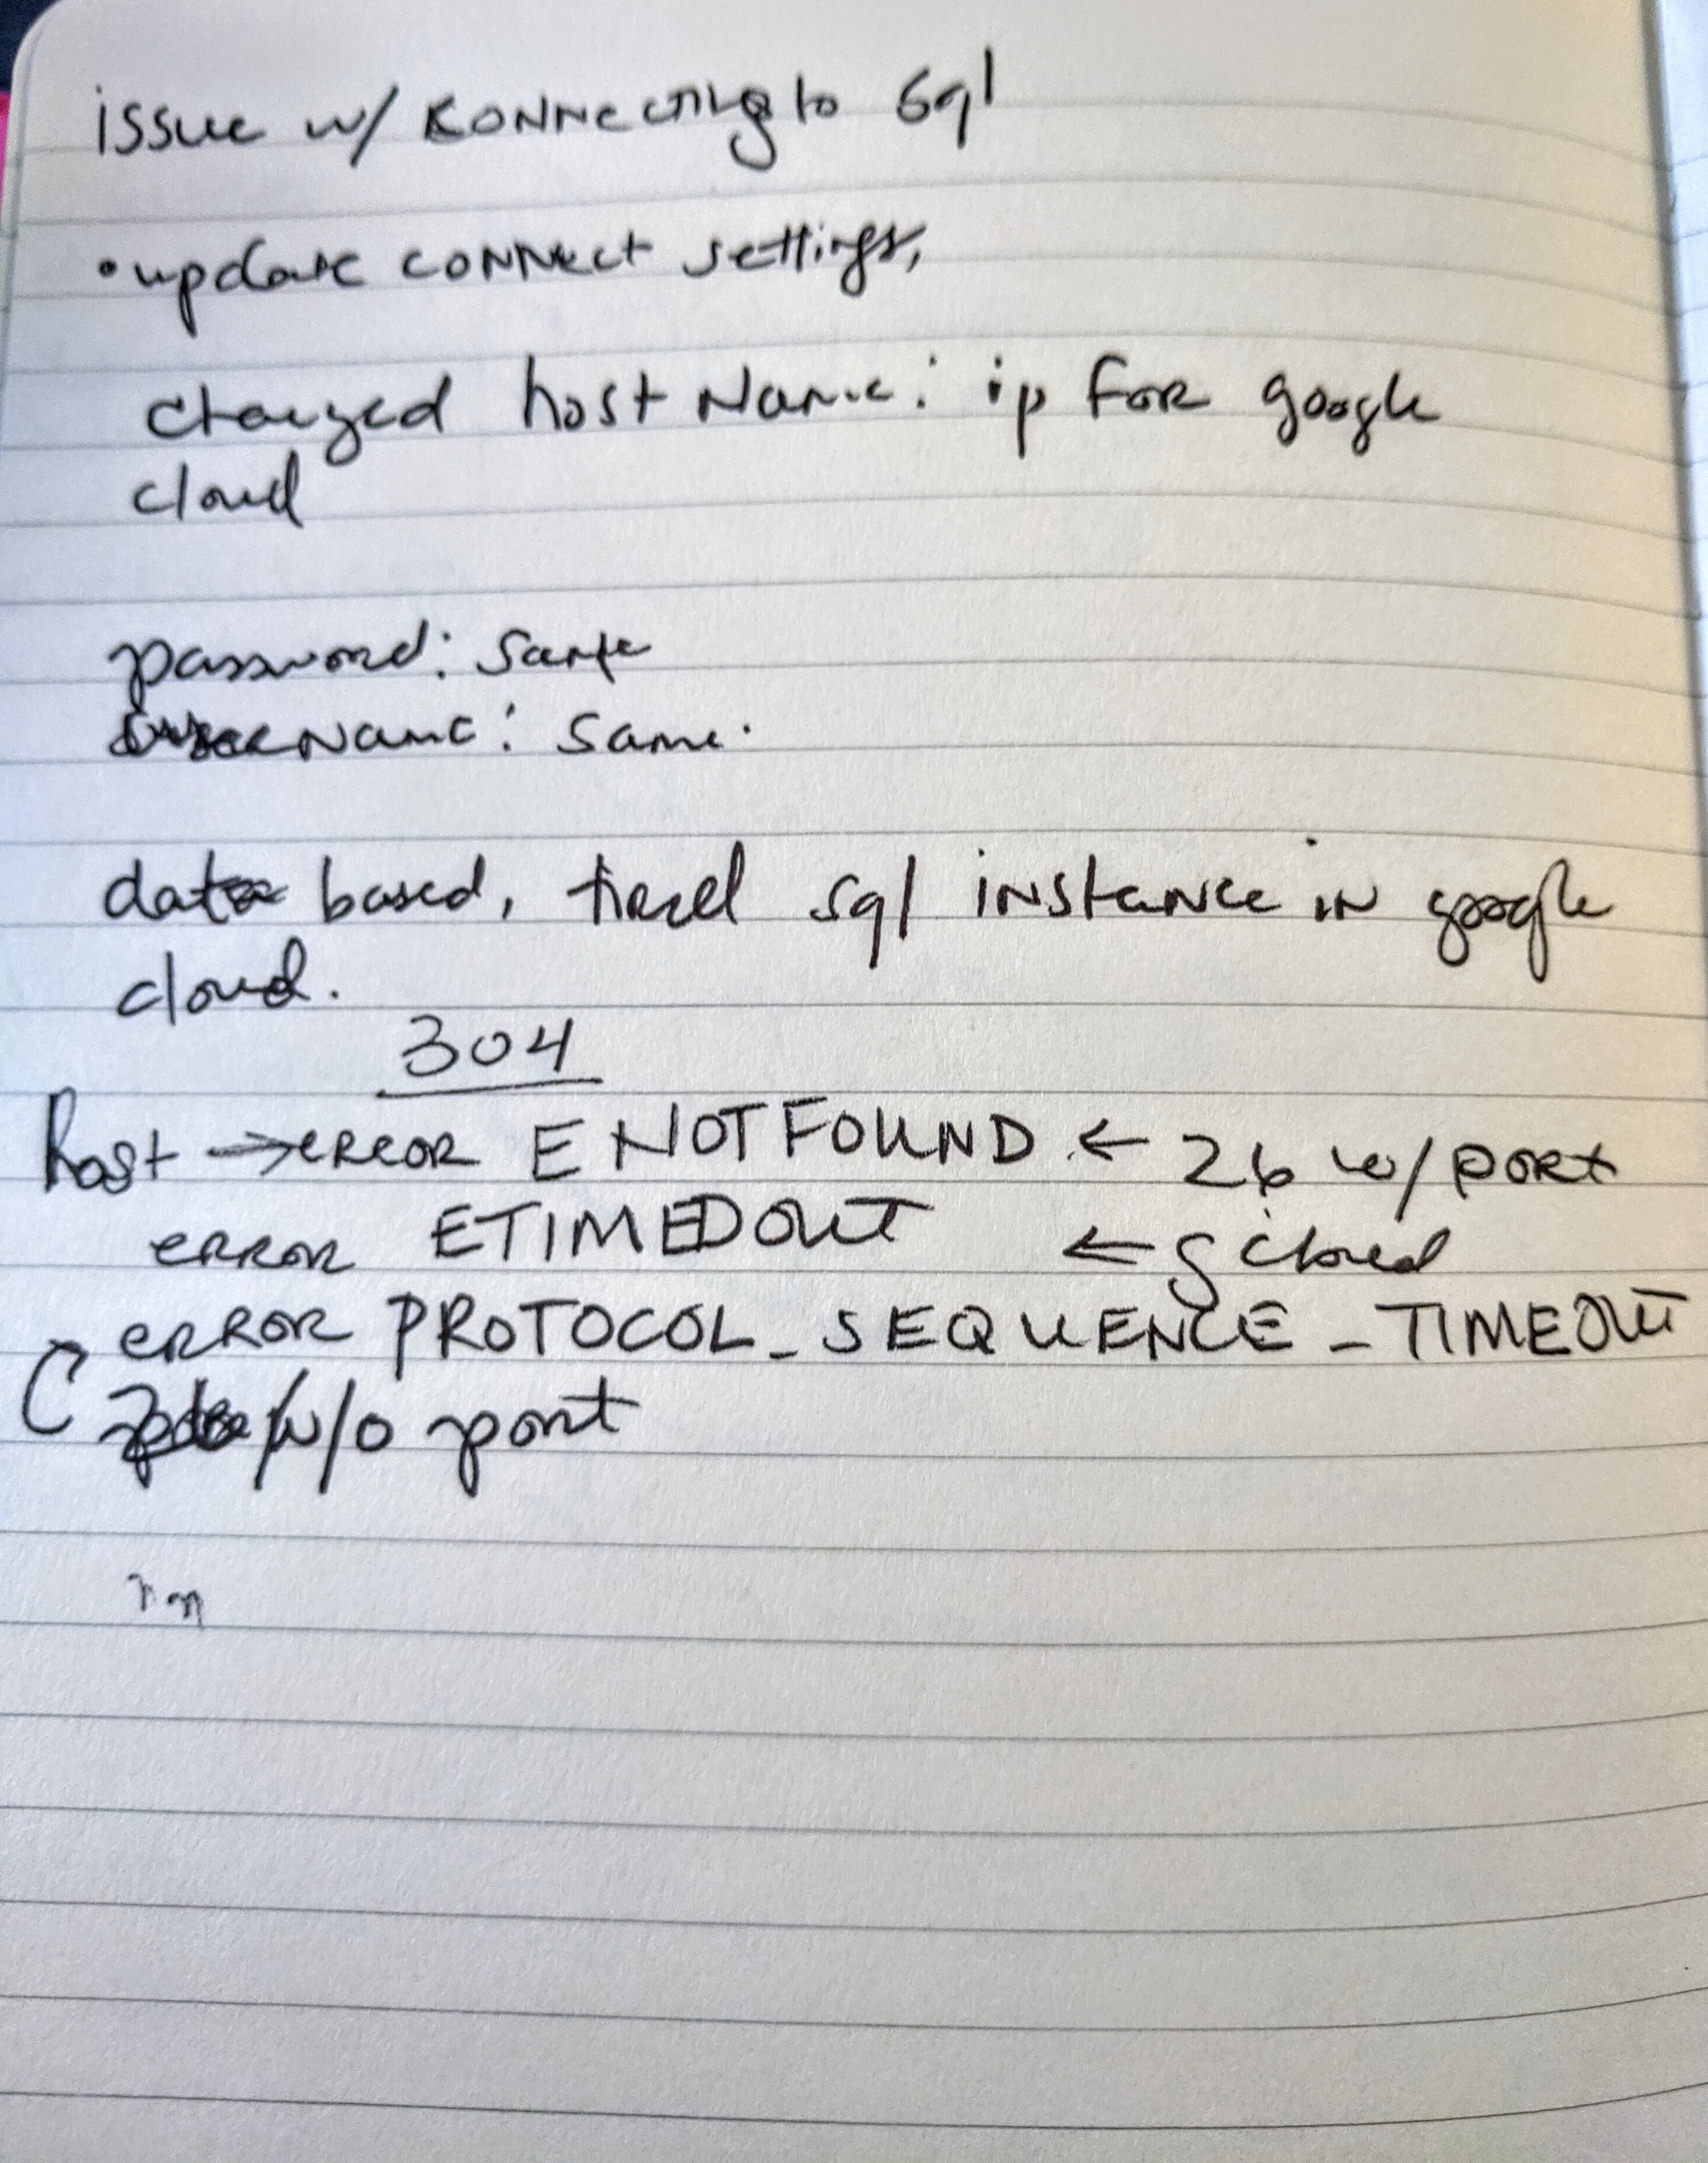 issue w/ connecting to sql
• update connect settings,
changed host Name: ip for google
cloud
password: same
userName: same.
data based, tried sql instance in google
cloud.
304
host → error ENOTFOUND ← 26 w/port
error ETIMEDOUT ← g cloud
error PROTOCOL_SEQUENCE_TIMEOUT
w/o port